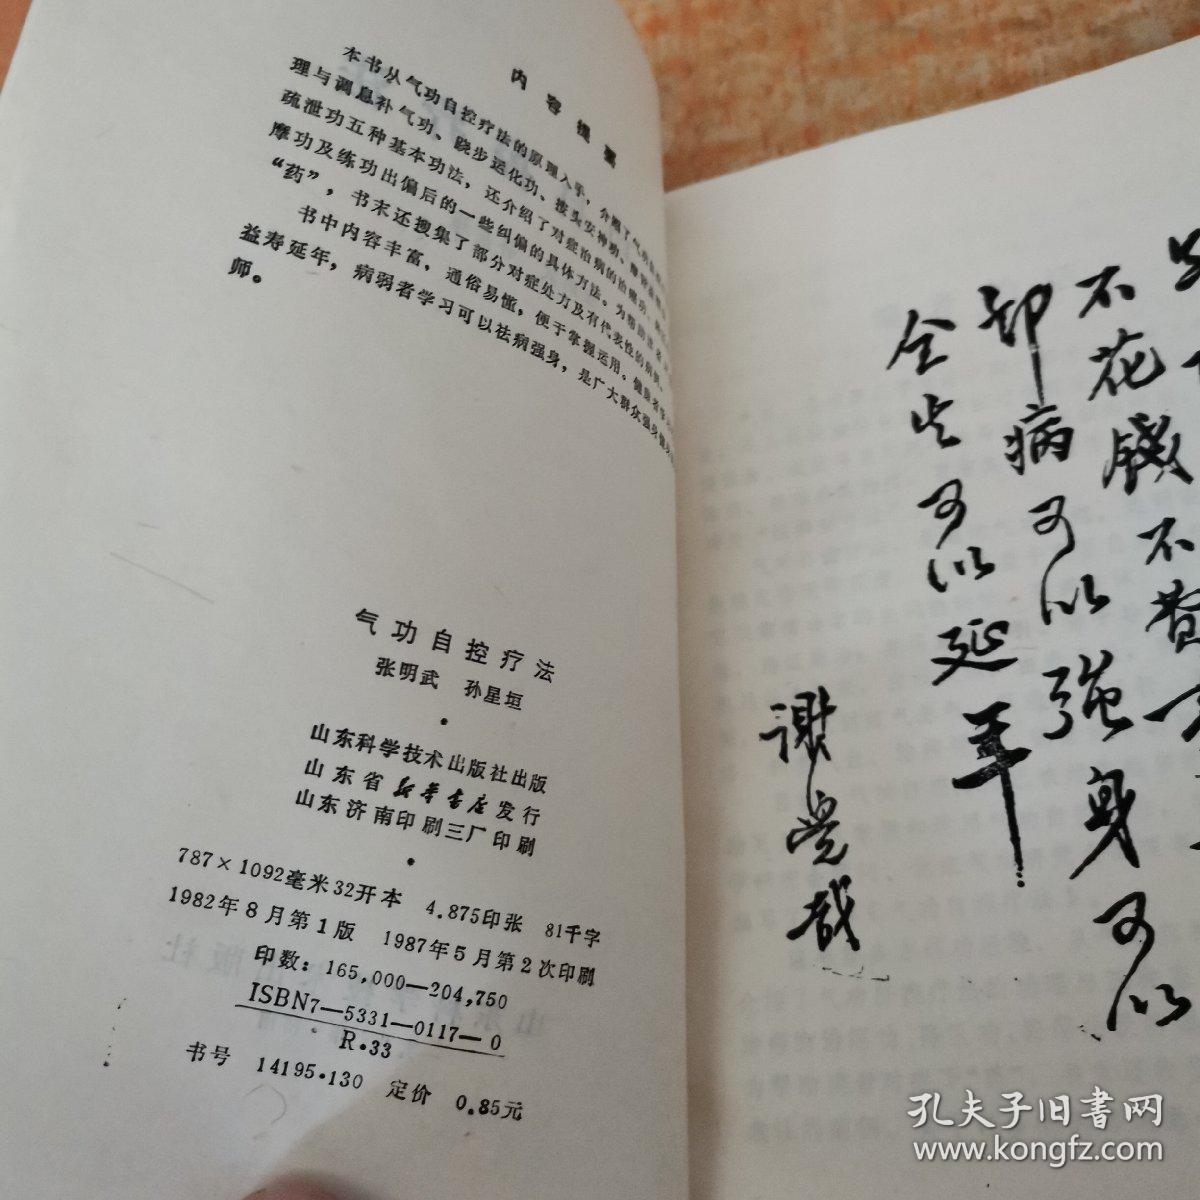 内容提要
本书从气功自控疗法的原理入手，介绍了气功
理与调息补气功、跷步运化功、按头安神功、
疏泄功五种基本功法，还介绍了对症治病的治
摩功及练功出偏后的一些纠偏的具体方法。为帮助
“药”，书末还搜集了部分对症处方及有代表性的病例。
书中内容丰富，通俗易懂，便于掌握运用。健康者
益寿延年，病弱者学习可以祛病强身，是广大群众强身
师。
气功自控疗法
张明武 孙星垣
山东科学技术出版社出版
山东省新华书店发行
山东济南印刷三厂印刷
787×1092毫米32开本 4.875印张 81千字
1982年8月第1版 1987年5月第2次印刷
印数：165,000—204,750
ISBN7—5331—0117—0
R·33
书号 14195·130 定价 0.85元
不花钱不费
却病可以强身可以
全生可以延年
谢觉哉
孔夫子旧书网
www.kongfz.com